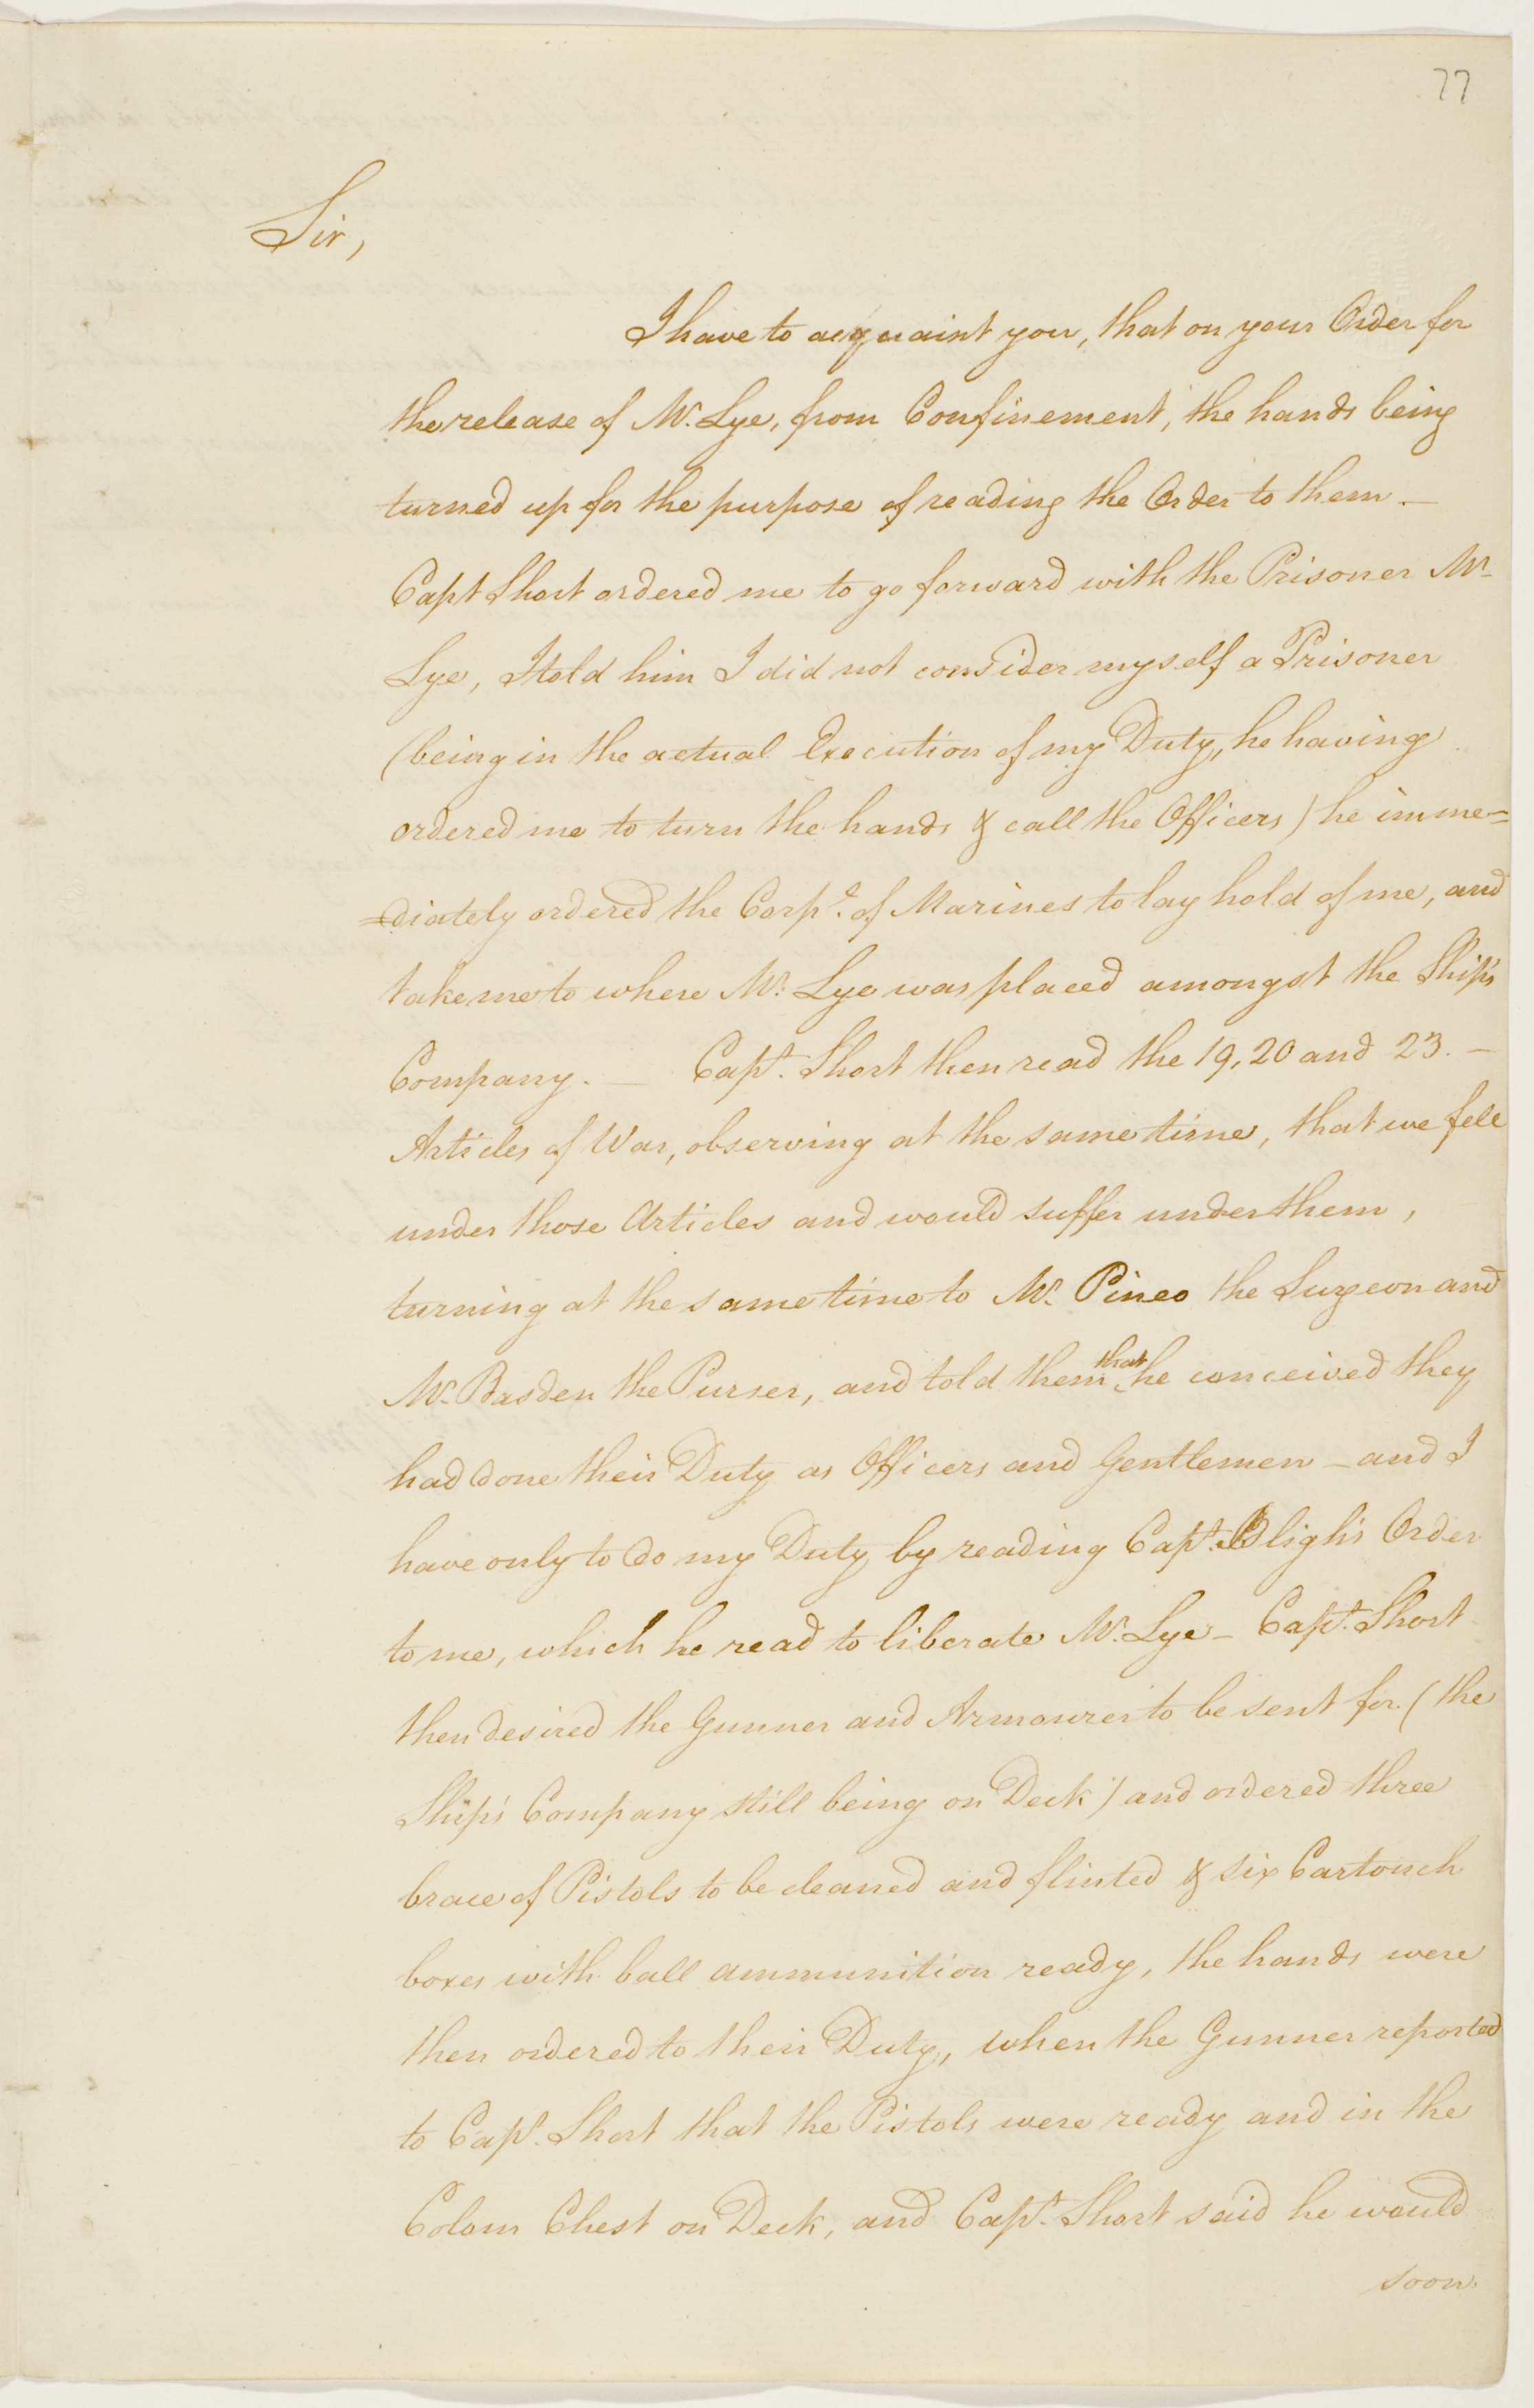 77
Sir,
I have to acquaint you, that on your Order for
the release of Mr. Lye, from Confinement, the hands being
turned up for the purpose of reading the Order to them. —
Capt Short ordered me to go forward with the Prisoner Mr.
Lye, I told him I did not consider myself a Prisoner
(being in the actual Execution of my Duty, he having
ordered me to turn the hands & call the Officers) he imme=
=diately ordered the Corpl. of Marines to lay hold of me, and
take me to where Mr. Lye was placed amongst the Ship's
Company. — Capt. Short then read the 19, 20 and 23. —
Articles of War, observing at the same time, that we fell
under those Articles and would suffer under them,
turning at the same time to Mr. Pineo the Surgeon and
Mr. Basden the Purser, and told them that he conceived they
had done their Duty as Officers and Gentlemen — and I
have only to do my Duty by reading Capt. Bligh's Order
to me, which he read to liberate Mr. Lye — Capt. Short
then desired the Gunner and Armourer to be sent for. (the
Ship's Company still being on Deck) and ordered three
brace of Pistols to be cleaned and flinted & six Cartouch
boxes with ball ammunition ready, the hands were
then ordered to their Duty, when the Gunner reported
to Capt. Short that the Pistols were ready and in the
Colom Chest on Deck, and Capt. Short said he would
soon